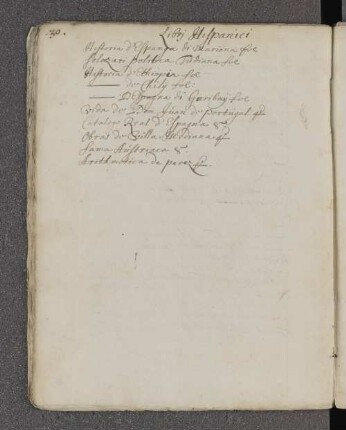 Librj Hispanici
Historia d'Espanna di Mariana fol
Solorzani Politica Indiana fol
Historia d'Ethiopia fol
—— de Chily fol
—— D'Espagna di Garibay fol
Vida de Don Juan de Portugal 4º
Catalogo Real d'Espagna 4º
Obras de Villa Mediana 4º
Fama Austriaca
Arithmetica de perez 4º